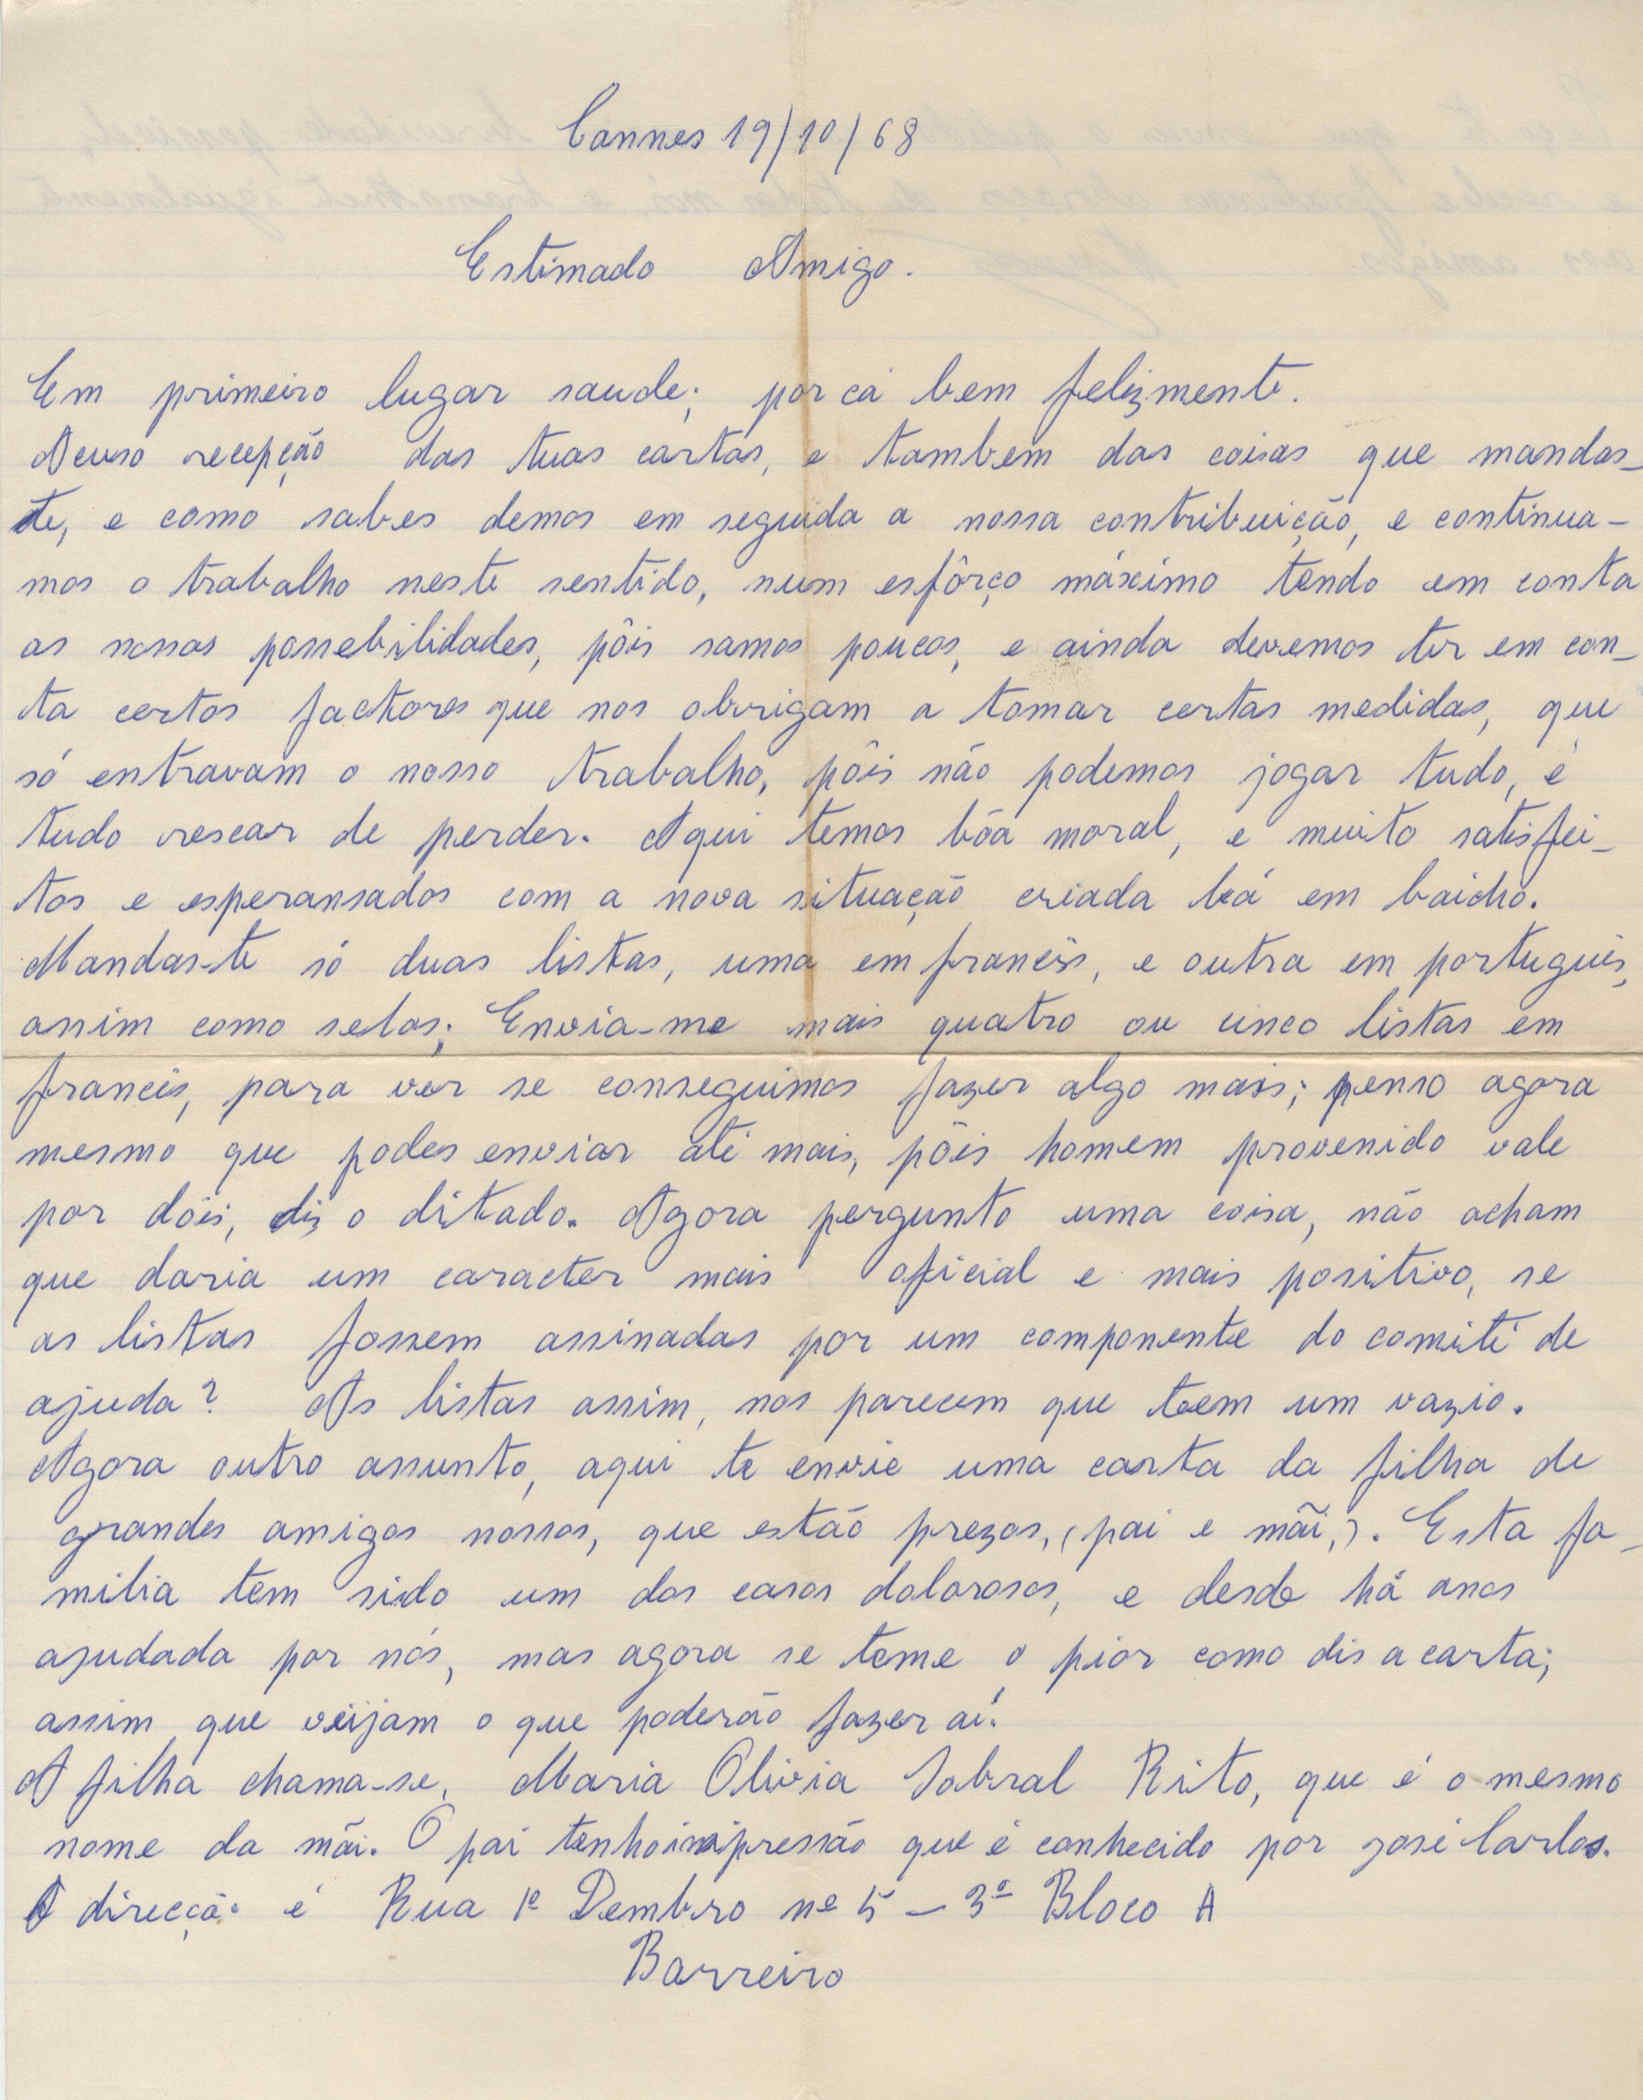 Cannes 19/10/68
Estimado Amigo.
Em primeiro lugar saude; por cá bem felizmente.
Acuso recepção das tuas cartas, e tambem das coisas que mandas-
te, e como sabes demos em seguida a nossa contribuição, e continua-
mos o trabalho neste sentido, num esfôrço máximo tendo em conta
as nossas possebilidades, pôis samos poucos, e ainda devemos ter em con-
ta certos factores que nos obrigam a tomar certas medidas, que
só entravam o nosso trabalho, pôis não podemos jogar tudo, é
tudo rescar de perder. Aqui temos bôa moral, e muito satisfei-
tos e esperansados com a nova situação criada lá em baicho.
Mandas-te só duas listas, uma em francês, e outra em português,
assim como selos; Envia-me mais quatro ou cinco listas em
francês, para ver se conseguimos fazer algo mais; penso agora
mesmo que podes enviar até mais, pôis homem provenido vale
por dôis, diz o ditado. Agora pergunto uma coisa, não acham
que daria um caracter mais oficial e mais positivo, se
as listas fossem assinadas por um componente do comité de
ajuda? As listas assim, nos parecem que teem um vazio.
Agora outro assunto, aqui te envie uma carta da filha de
grandes amigos nossos, que estão prezos, (pai e mãi,). Esta fa-
milia tem sido um dos casos dolorosos, e desde há anos
ajudada por nós, mas agora se teme o pior como dis a carta;
assim que veijam o que poderão fazer aí.
A filha chama-se, Maria Olivia Sobral Rito, que é o mesmo
nome da mãi. O pai tenho impressão que é conhecido por José Carlos.
A direcção é Rua 1º Dembro nº 5 - 3º Bloco A
Barreiro